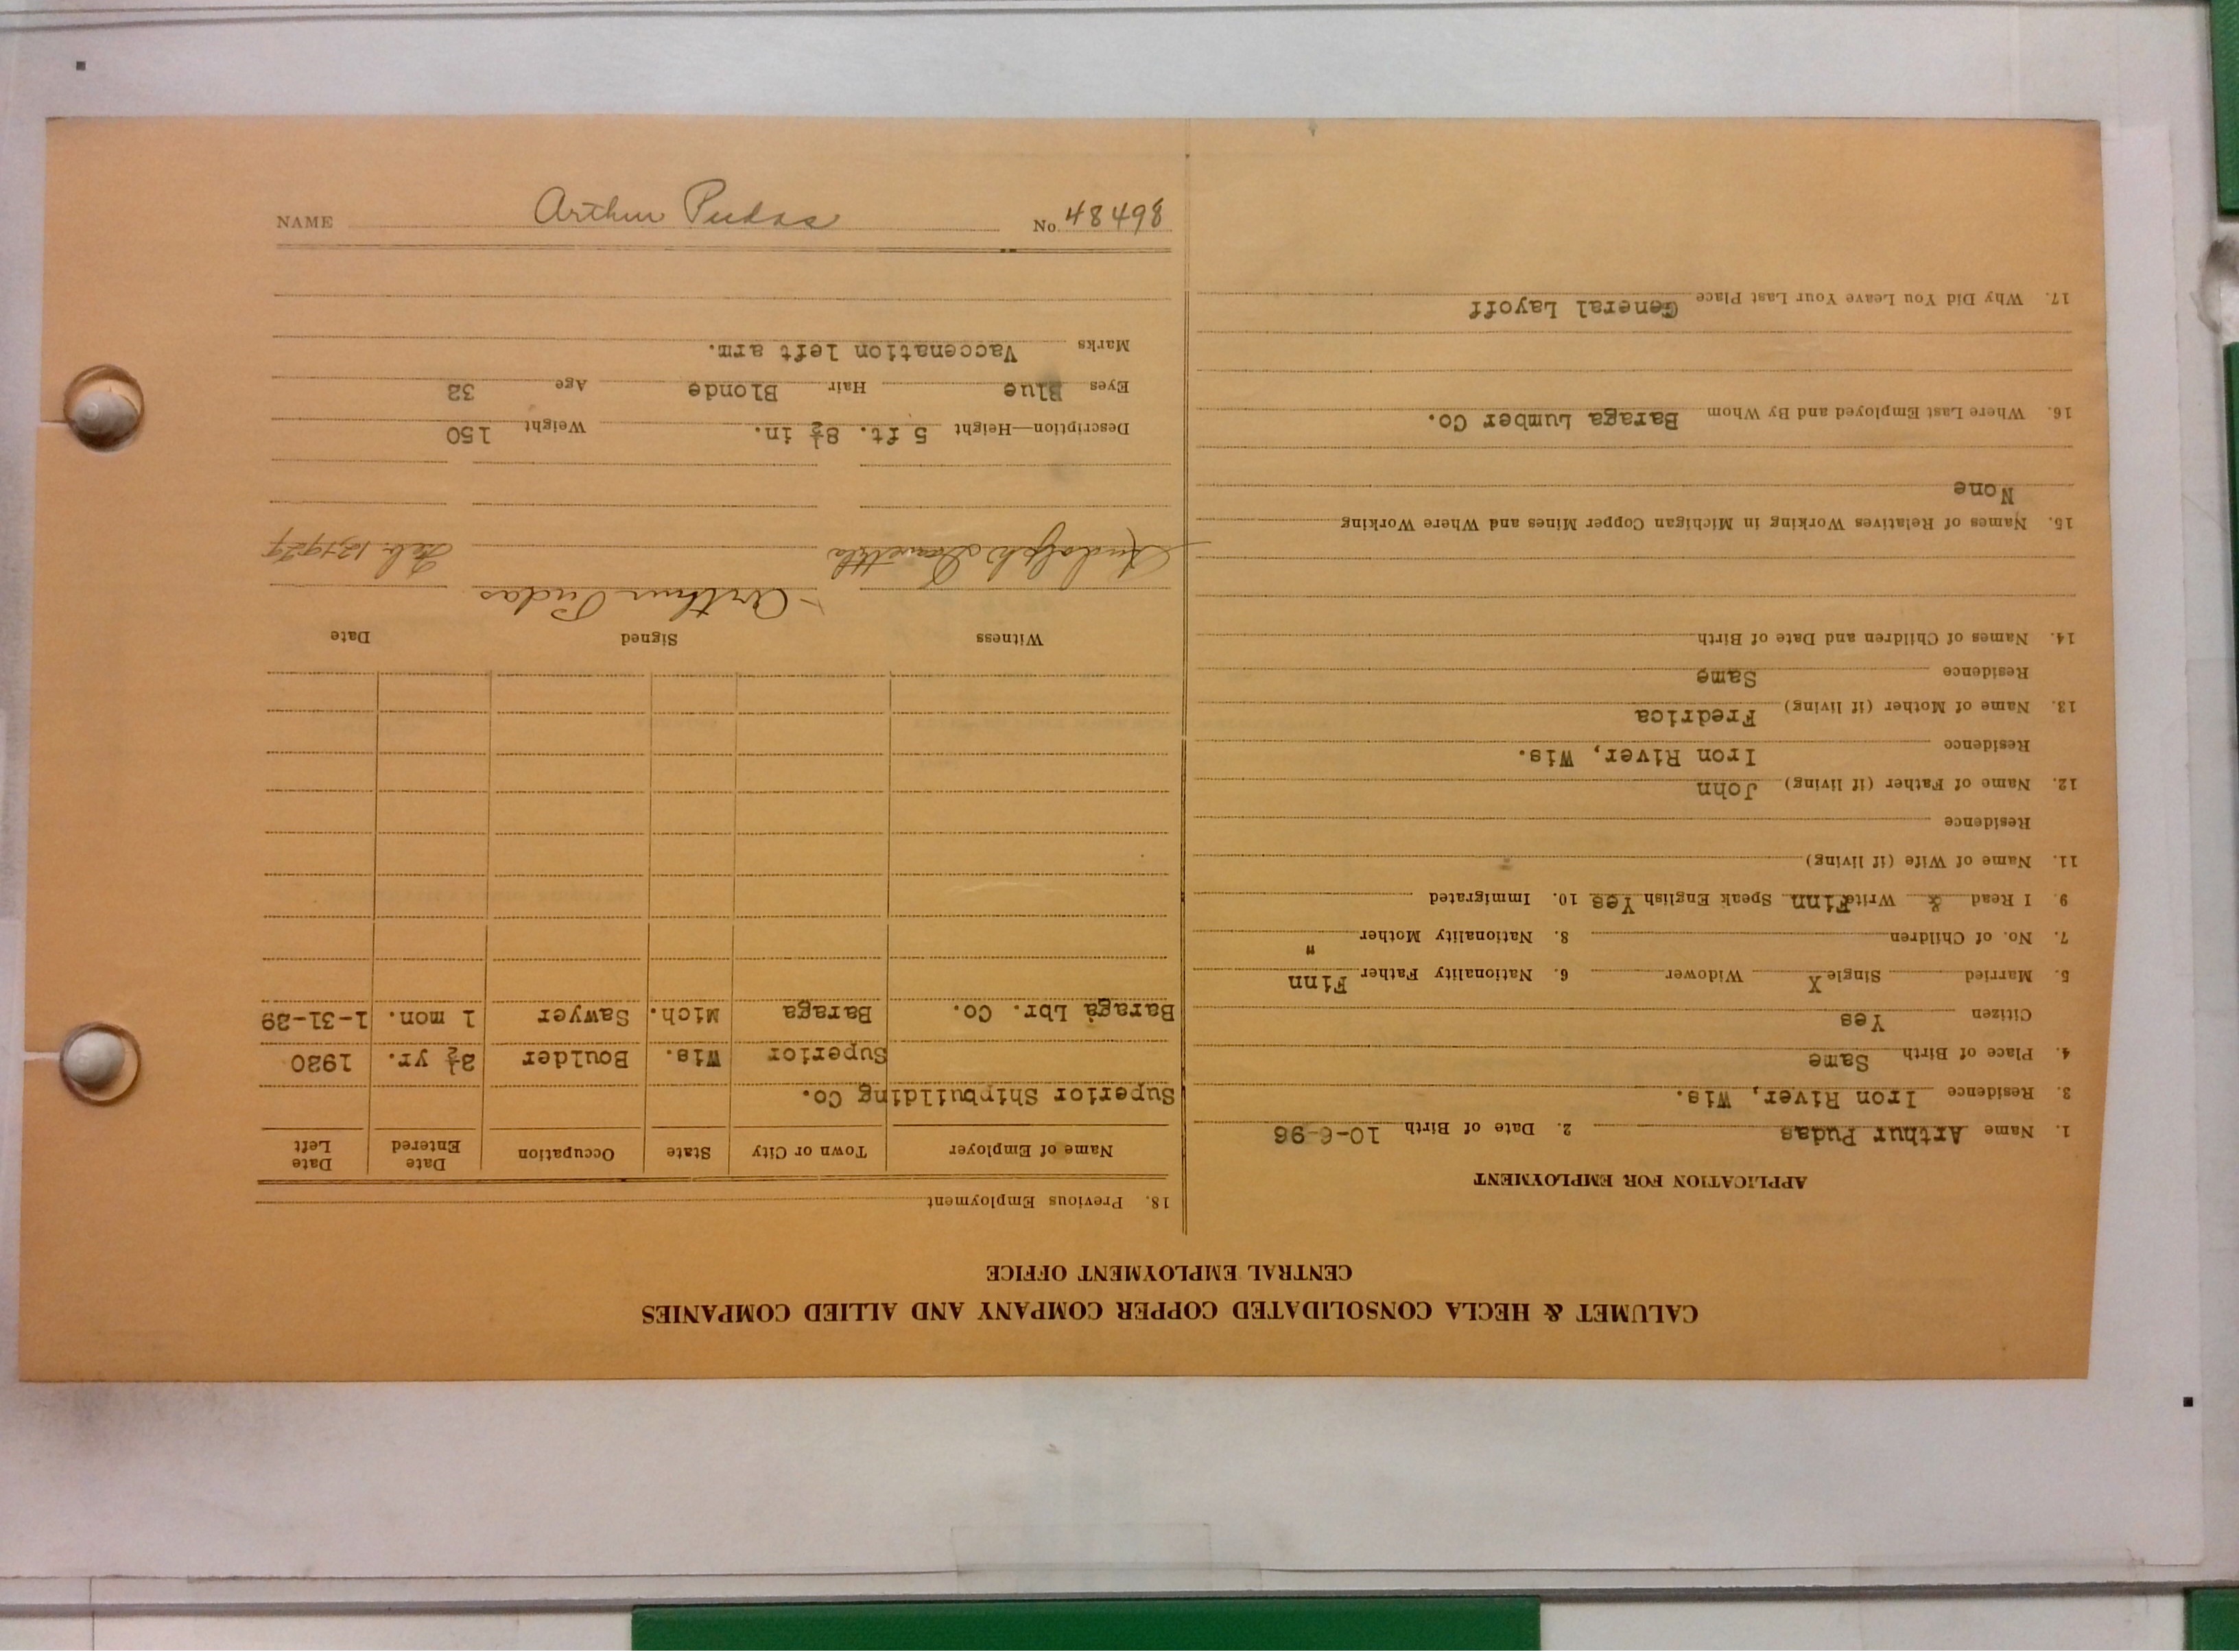 NAME Arthur Pudas No. 48498
CALUMET & HECLA CONSOLIDATED COPPER COMPANY AND ALLIED COMPANIES
CENTRAL EMPLOYMENT OFFICE
APPLICATION FOR EMPLOYMENT
1. Name Arthur Pudas 2. Date of Birth 10-6-96
3. Residence Iron River, Wis.
4. Place of Birth Same
Citizen Yes
5. Married Single X Widower 6. Nationality Father Finn
7. No. of Children 8. Nationality Mother "
9. I Read & Write Finn Speak English Yes 10. Immigrated
11. Name of Wife (if living)
Residence
12. Name of Father (if living) John
Residence Iron River, Wis.
13. Name of Mother (if living) Fredrica
Residence Same
14. Names of Children and Date of Birth
15. Names of Relatives Working in Michigan Copper Mines and Where Working
None
16. Where Last Employed and By Whom Baraga Lumber Co.
17. Why Did You Leave Your Last Place General Layoff
18. Previous Employment
Name of Employer Town or City State Occupation Date Entered Date Left
Superior Shipbuilding Co.
Superior Wis. Boulder 2½ yr. 1920
Baraga Lbr. Co. Baraga Mich. Sawyer 1 mon. 1-31-29
Witness Signed Date
Rudolph Arthur Pudas Feb. 12, 1929
Description—Height 5 ft. 8½ in. Weight 150
Eyes Blue Hair Blonde Age 32
Marks Vaccenation left arm.